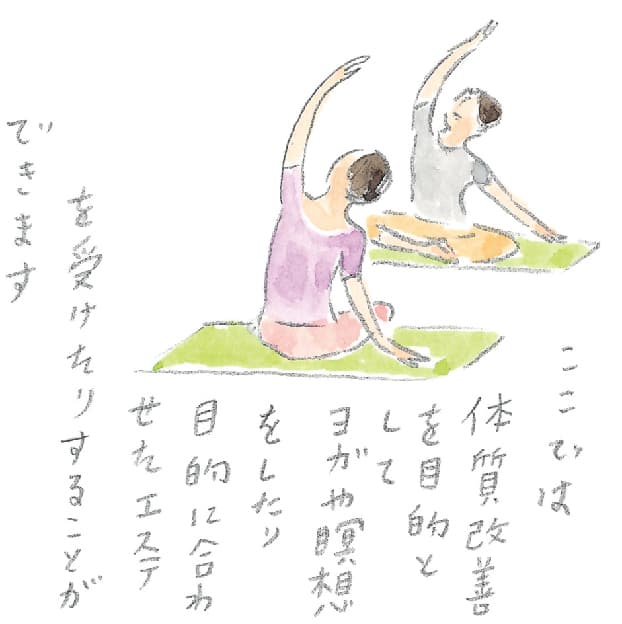 ここでは
体質改善
を目的と
して
ヨガや瞑想
をしたり
目的に合わ
せたエステ
を受けたりすることが
できます